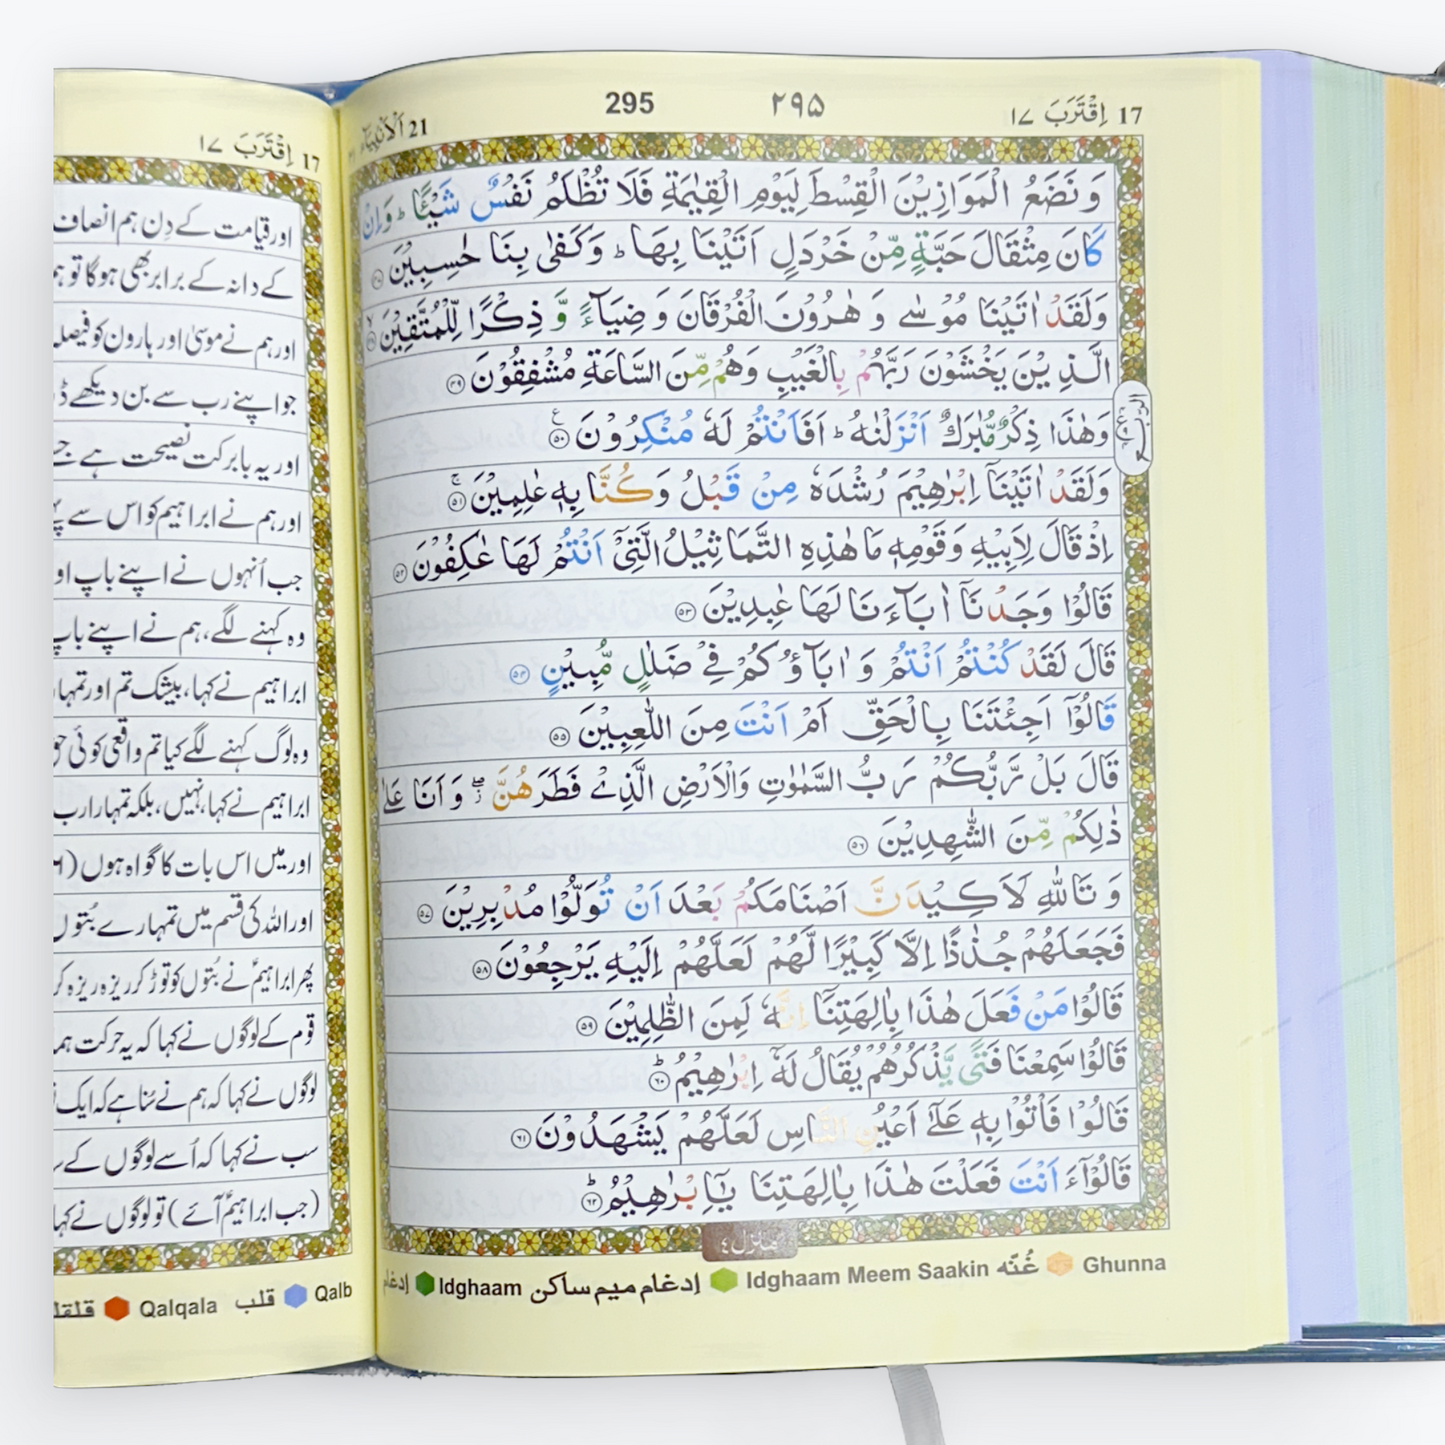 17 اِقْتَرَبَ ١٧
295 ٢٩٥
21 اَلْاَنْبِيَآء ٢١
وَ نَضَعُ الْمَوَازِيْنَ الْقِسْطَ لِيَوْمِ الْقِيٰمَةِ فَلَا تُظْلَمُ نَفْسٌ شَيْـًٔا ؕ وَاِنْ
كَانَ مِثْقَالَ حَبَّةٍ مِّنْ خَرْدَلٍ اَتَيْنَا بِهَا ؕ وَكَفٰى بِنَا حٰسِبِيْنَ ﴿۴۷﴾
وَلَقَدْ اٰتَيْنَا مُوْسٰى وَ هٰرُوْنَ الْفُرْقَانَ وَ ضِيَآءً وَّ ذِكْرًا لِّلْمُتَّقِيْنَ ۙ﴿۴۸﴾
الَّذِيْنَ يَخْشَوْنَ رَبَّهُمْ بِالْغَيْبِ وَهُمْ مِّنَ السَّاعَةِ مُشْفِقُوْنَ ﴿۴۹﴾
وَهٰذَا ذِكْرٌ مُّبٰرَكٌ اَنْزَلْنٰهُ ؕ اَفَاَنْتُمْ لَهٗ مُنْكِرُوْنَ ﴿۵۰﴾ ع
وَلَقَدْ اٰتَيْنَاۤ اِبْرٰهِيْمَ رُشْدَهٗ مِنْ قَبْلُ وَكُنَّا بِهٖ عٰلِمِيْنَ ۚ﴿۵۱﴾
اِذْ قَالَ لِاَبِيْهِ وَقَوْمِهٖ مَا هٰذِهِ التَّمَاثِيْلُ الَّتِيْۤ اَنْتُمْ لَهَا عٰكِفُوْنَ ﴿۵۲﴾
قَالُوْا وَجَدْنَاۤ اٰبَآءَنَا لَهَا عٰبِدِيْنَ ﴿۵۳﴾
قَالَ لَقَدْ كُنْتُمْ اَنْتُمْ وَ اٰبَآؤُكُمْ فِيْ ضَلٰلٍ مُّبِيْنٍ ﴿۵۴﴾
قَالُوْۤا اَجِئْتَنَا بِالْحَقِّ اَمْ اَنْتَ مِنَ اللّٰعِبِيْنَ ﴿۵۵﴾
قَالَ بَلْ رَّبُّكُمْ رَبُّ السَّمٰوٰتِ وَالْاَرْضِ الَّذِيْ فَطَرَهُنَّ ۖ٘ وَ اَنَا عَلٰى
ذٰلِكُمْ مِّنَ الشّٰهِدِيْنَ ﴿۵۶﴾
وَ تَاللّٰهِ لَاَكِيْدَنَّ اَصْنَامَكُمْ بَعْدَ اَنْ تُوَلُّوْا مُدْبِرِيْنَ ﴿۵۷﴾
فَجَعَلَهُمْ جُذٰذًا اِلَّا كَبِيْرًا لَّهُمْ لَعَلَّهُمْ اِلَيْهِ يَرْجِعُوْنَ ﴿۵۸﴾
قَالُوْا مَنْ فَعَلَ هٰذَا بِاٰلِهَتِنَاۤ اِنَّهٗ لَمِنَ الظّٰلِمِيْنَ ﴿۵۹﴾
قَالُوْا سَمِعْنَا فَتًى يَّذْكُرُهُمْ يُقَالُ لَهٗۤ اِبْرٰهِيْمُ ؕ﴿۶۰﴾
قَالُوْا فَاْتُوْا بِهٖ عَلٰۤى اَعْيُنِ النَّاسِ لَعَلَّهُمْ يَشْهَدُوْنَ ﴿۶۱﴾
قَالُوْۤا ءَاَنْتَ فَعَلْتَ هٰذَا بِاٰلِهَتِنَا يٰۤاِبْرٰهِيْمُ ؕ﴿۶۲﴾
منزل ٤
Ghunna غُنّه Idghaam Meem Saakin إدغام ميم ساكن Idghaam إدغا
17 اِقْتَرَبَ ١٧
اور قیامت کے دِن ہم انصاف
کے دانہ کے برابر بھی ہو گا تو ہم
اور ہم نے موسیٰ اور ہارون کو فیصلہ
جو اپنے رب سے بن دیکھے
اور یہ بابرکت نصیحت ہے جسے
اور ہم نے ابراہیم کو اس سے
جب اُنہوں نے اپنے باپ اور
وہ کہنے لگے، ہم نے اپنے باپ
ابراہیم نے کہا، بیشک تم اور تمہارے
وہ لوگ کہنے لگے کیا تم واقعی کوئی
ابراہیم نے کہا، نہیں، بلکہ تمہارا رب
اور میں اس بات کا گواہ ہوں
اور اللہ کی قسم میں تمہارے بُتوں
پھر ابراہیمؑ نے بُتوں کو توڑ کر ریزہ ریزہ کر
قوم کے لوگوں نے کہا کہ یہ حرکت
لوگوں نے کہا کہ ہم نے سُنا ہے کہ ایک
سب نے کہا کہ اُسے لوگوں کے
(جب ابراہیمؑ آئے) تو لوگوں نے کہا
Qalb قلب Qalqala قلقل